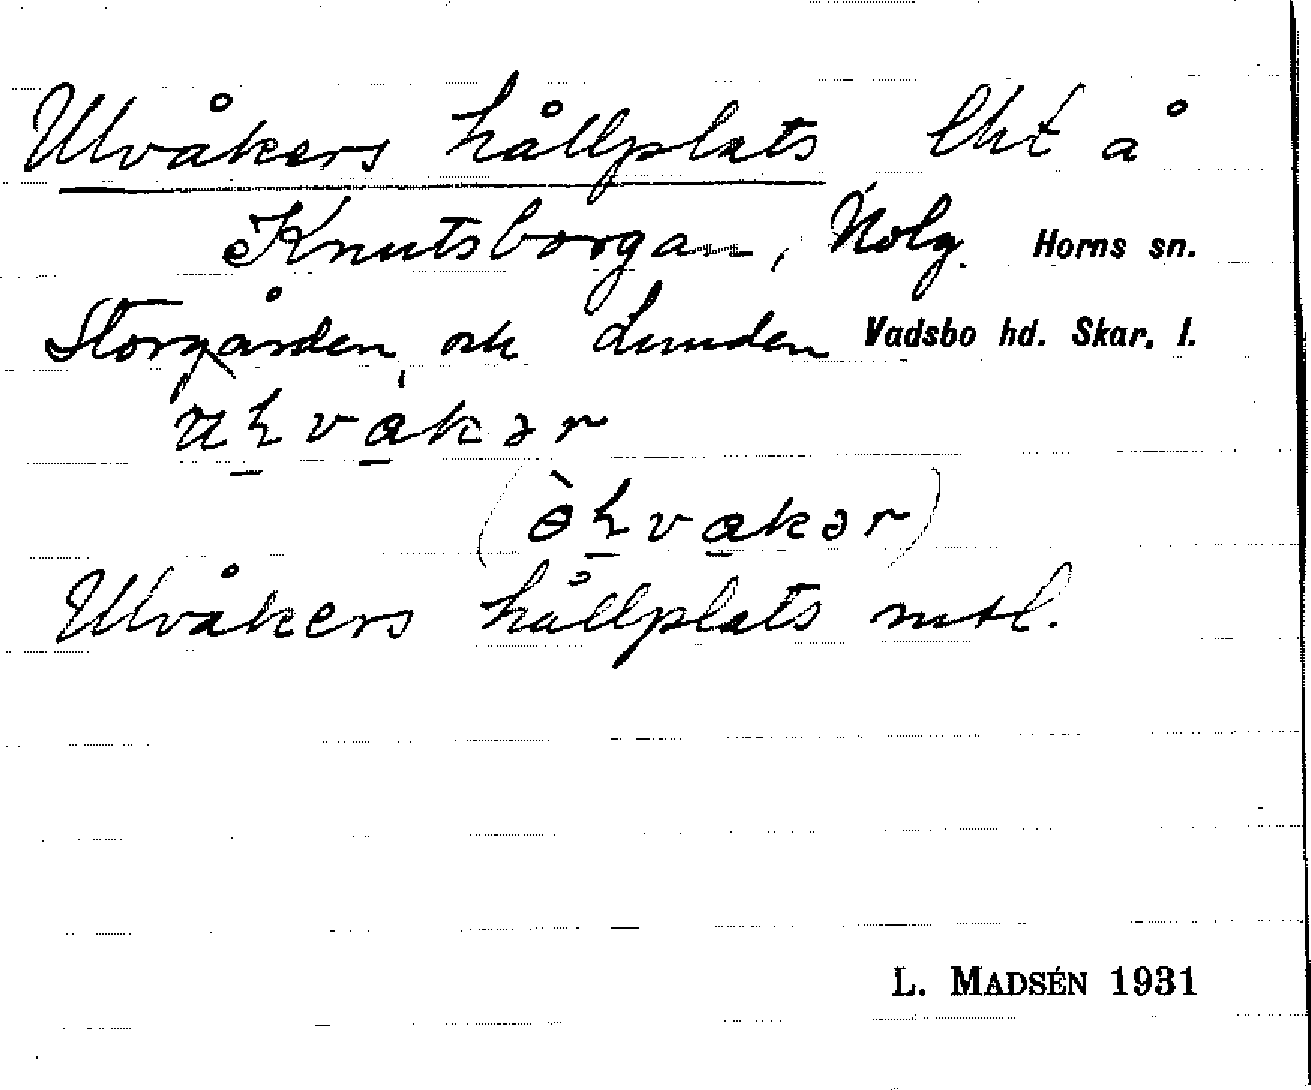 Ulvåkers hållplats lht å
Knutsborgan, Nolg. Horns sn.
Storgården, och Lunden Vadsbo hd. Skar. l.
Ulvåkers hållplats mtl.
L. MADSÉN 1931